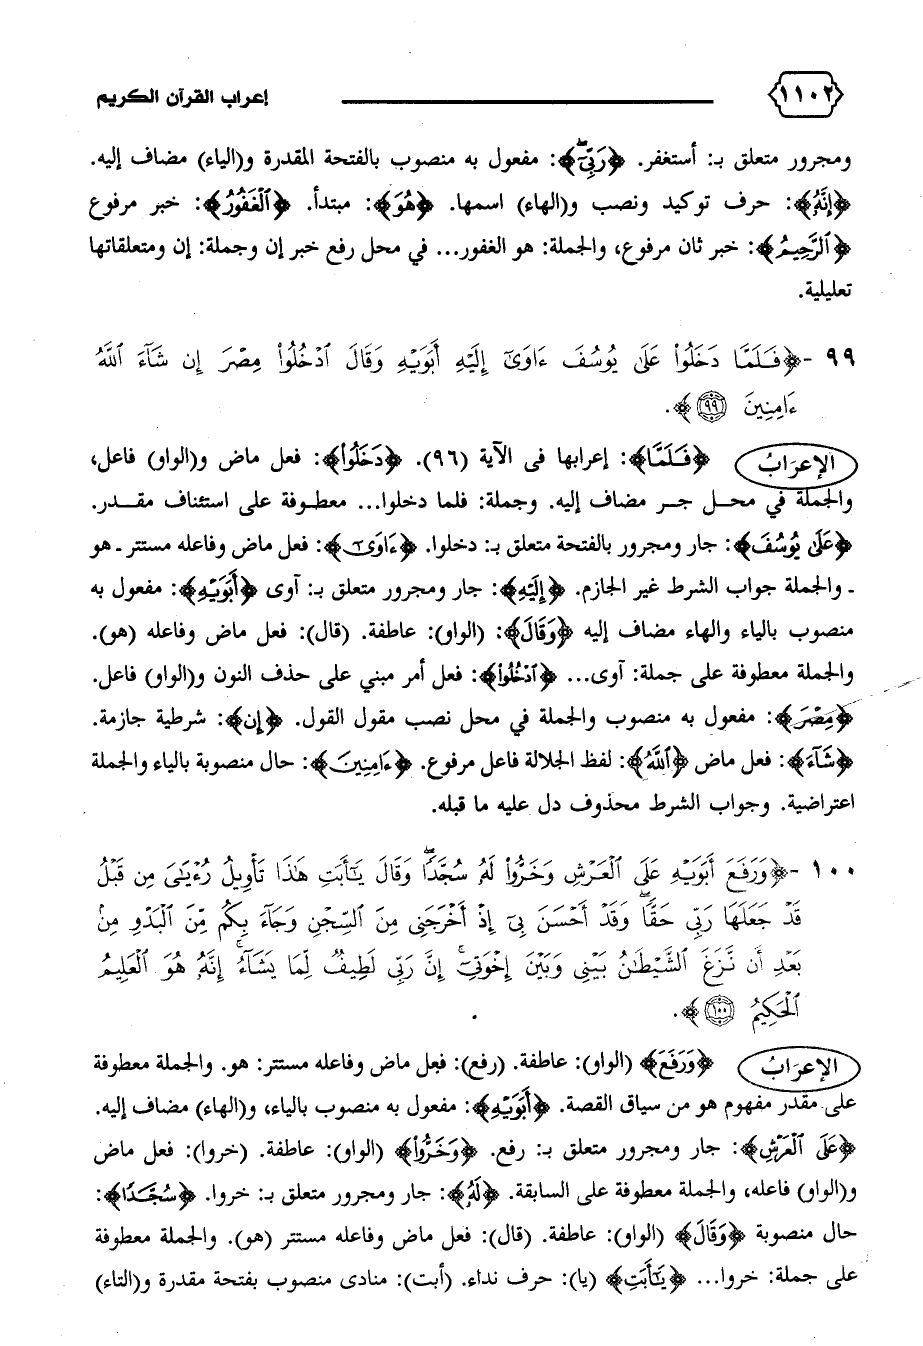 ١١٠٢ إعراب القرآن الكريم
ومجرور متعلق بـ: أستغفر. ﴿رَبِّيٓۖ﴾: مفعول به منصوب بالفتحة المقدرة و(الياء) مضاف إليه.
﴿إِنَّهُۥ﴾: حرف توكيد ونصب و(الهاء) اسمها. ﴿هُوَ﴾: مبتدأ. ﴿ٱلْغَفُورُ﴾: خبر مرفوع
﴿ٱلرَّحِيمُ﴾: خبر ثان مرفوع، والجملة: هو الغفور... في محل رفع خبر إن وجملة: إن ومتعلقاتها
تعليلية.
٩٩ - ﴿فَلَمَّا دَخَلُوا۟ عَلَىٰ يُوسُفَ ءَاوَىٰٓ إِلَيْهِ أَبَوَيْهِ وَقَالَ ٱدْخُلُوا۟ مِصْرَ إِن شَآءَ ٱللَّهُ
ءَامِنِينَ ﴿٩٩﴾﴾.
الإعرَابُ ﴿فَلَمَّا﴾: إعرابها في الآية (٩٦). ﴿دَخَلُوا۟﴾: فعل ماض و(الواو) فاعل،
والجملة في محل جر مضاف إليه. وجملة: فلما دخلوا... معطوفة على استئناف مقدر.
﴿عَلَىٰ يُوسُفَ﴾: جار ومجرور بالفتحة متعلق بـ: دخلوا. ﴿ءَاوَىٰٓ﴾: فعل ماض وفاعله مستتر ـ هو
ـ والجملة جواب الشرط غير الجازم. ﴿إِلَيْهِ﴾: جار ومجرور متعلق بـ: آوى ﴿أَبَوَيْهِ﴾: مفعول به
منصوب بالياء والهاء مضاف إليه ﴿وَقَالَ﴾: (الواو): عاطفة. (قال): فعل ماض وفاعله (هو).
والجملة معطوفة على جملة: آوى... ﴿ٱدْخُلُوا۟﴾: فعل أمر مبني على حذف النون و(الواو) فاعل.
﴿مِصْرَ﴾: مفعول به منصوب والجملة في محل نصب مقول القول. ﴿إِن﴾: شرطية جازمة.
﴿شَآءَ﴾: فعل ماض ﴿ٱللَّهُ﴾: لفظ الجلالة فاعل مرفوع. ﴿ءَامِنِينَ﴾: حال منصوبة بالياء والجملة
اعتراضية. وجواب الشرط محذوف دل عليه ما قبله.
١٠٠ - ﴿وَرَفَعَ أَبَوَيْهِ عَلَى ٱلْعَرْشِ وَخَرُّوا۟ لَهُۥ سُجَّدًاۖ وَقَالَ يَٰٓأَبَتِ هَٰذَا تَأْوِيلُ رُءْيَٰىَ مِن قَبْلُ
قَدْ جَعَلَهَا رَبِّى حَقًّاۖ وَقَدْ أَحْسَنَ بِىٓ إِذْ أَخْرَجَنِى مِنَ ٱلسِّجْنِ وَجَآءَ بِكُم مِّنَ ٱلْبَدْوِ مِنۢ
بَعْدِ أَن نَّزَغَ ٱلشَّيْطَٰنُ بَيْنِى وَبَيْنَ إِخْوَتِىٓۚ إِنَّ رَبِّى لَطِيفٌ لِّمَا يَشَآءُۚ إِنَّهُۥ هُوَ ٱلْعَلِيمُ
ٱلْحَكِيمُ ﴿١٠٠﴾﴾.
الإعرَابُ ﴿وَرَفَعَ﴾ (الواو): عاطفة. (رفع): فعل ماض وفاعله مستتر: هو. والجملة معطوفة
على مقدر مفهوم هو من سياق القصة. ﴿أَبَوَيْهِ﴾: مفعول به منصوب بالياء، و(الهاء) مضاف إليه.
﴿عَلَى ٱلْعَرْشِ﴾: جار ومجرور متعلق بـ: رفع. ﴿وَخَرُّوا۟﴾ (الواو): عاطفة. (خروا): فعل ماض
و(الواو) فاعله، والجملة معطوفة على السابقة. ﴿لَهُۥ﴾: جار ومجرور متعلق بـ: خروا. ﴿سُجَّدًا﴾:
حال منصوبة ﴿وَقَالَ﴾ (الواو): عاطفة. (قال): فعل ماض وفاعله مستتر (هو). والجملة معطوفة
على جملة: خروا... ﴿يَٰٓأَبَتِ﴾ (يا): حرف نداء. (أبت): منادى منصوب بفتحة مقدرة و(التاء)